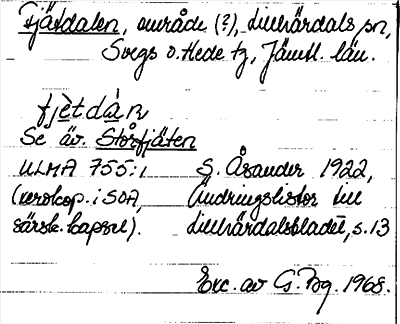 Fjätdalen, område (?), Lillhärdals sn,
Svegs o. Hede tg, Jämtl. län.
fjètdàn
Se äv. Storfjäten
ULMA 755:1 S. Åsander 1922,
(xerokop. i SOA, Ändringslistor till
särsk. kapsel). Lillhärdalsbladet, s. 13
Exc. av G. Bg. 1968.